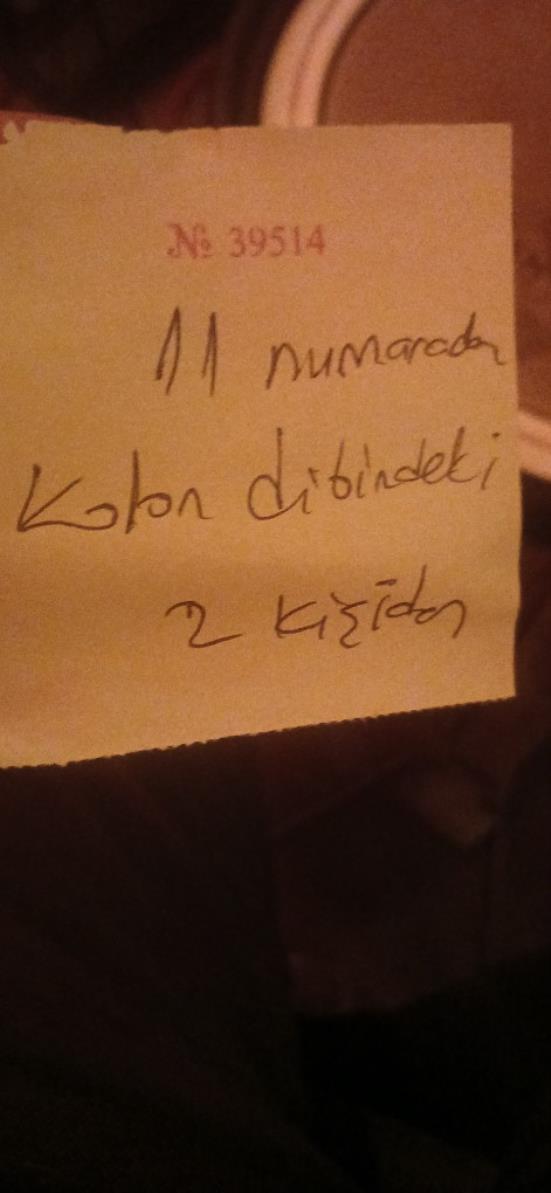 № 39514
11 numaradan
Kolon dibindeki
2 kişiden